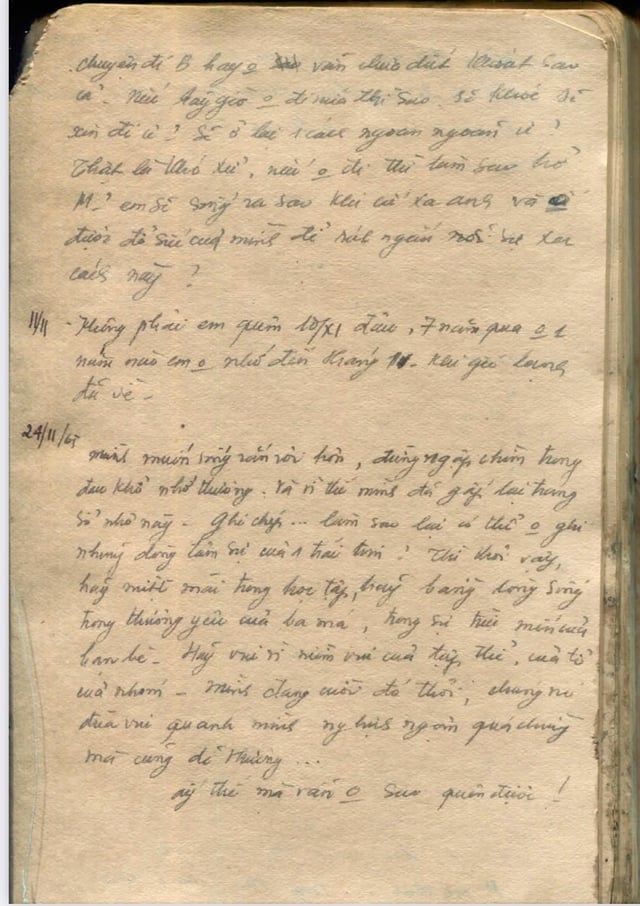 chuyện đi B hay o vẫn chưa dứt khoát sau
cả. Nếu bây giờ o đi nữa thì sao. Sẽ khóc để
xin đi ư? Sẽ ở lại 1 cách ngoan ngoãn ư?
Thật là khó xử, nếu o đi thì làm sao hở
M? em sẽ sống ra sao khi cứ xa anh và o
được đồ sức của mình để rút ngắn nỗi sự xa
cách này?
11/11 - Không phải em quên 10/XI đâu, 7 năm qua o 1
năm nào em o nhớ đến tháng 11. Khi gió lạnh
đã về -
24/11/65
mình muốn sống rắn rỏi hơn, đừng ngập chìm trong
đau khổ nhớ thương. Và vì thế mình đã gấp lại trang
sổ nhỏ này - Ghi chép... làm sao lại có thể o ghi
những dòng tâm sự của 1 trái tim! Thì thôi vậy,
hãy miệt mài trong học tập, hãy bằng lòng sống
trong thương yêu của ba má, trong sự trìu mến của
bạn bè - Hãy vui vì niềm vui của tập thể, của tổ
của nhóm - Mình đang cười đó thôi, chúng nó
đùa vui quanh mình nghịch ngợm quá chừng
mà cũng dễ thương...
ấy thế mà vẫn o sao quên được!